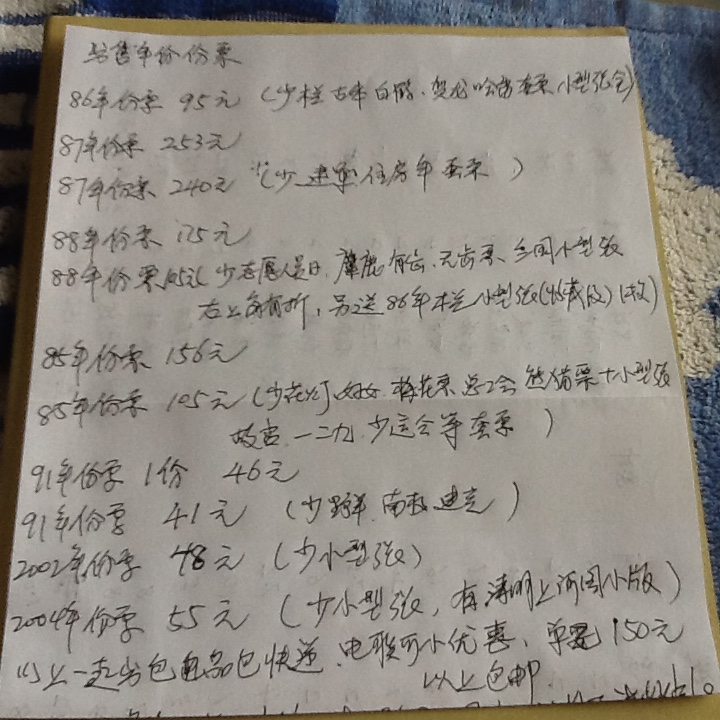 出售年份份票
86年份票 95元 (少栏 古木 白鹤、贺龙 哈雷 套票 小型张全)
87年份票 253元
87年份票 240元 (少 建军 住房年 套票 )
88年份票 175元
88年份票 少志愿人员日、麋鹿有齿、无齿票、三国小型张
右上角有折, 另送86年 栏小型张 1枚)
85年份票 156元
85年份票 105元 (少花灯 妇女 梅花票 总工会 熊猫票+小型张
故宫 一二九 少运会等套票 )
91年份票 1份 46元
91年份票 41元 (少野羊 南极 建党)
2002年份票 48元 (少小型张)
2004年份票 55元 (少小型张, 有清明上河图小版)
以上一起出包品包快递、电联可小优惠、单笔150元
以上包邮